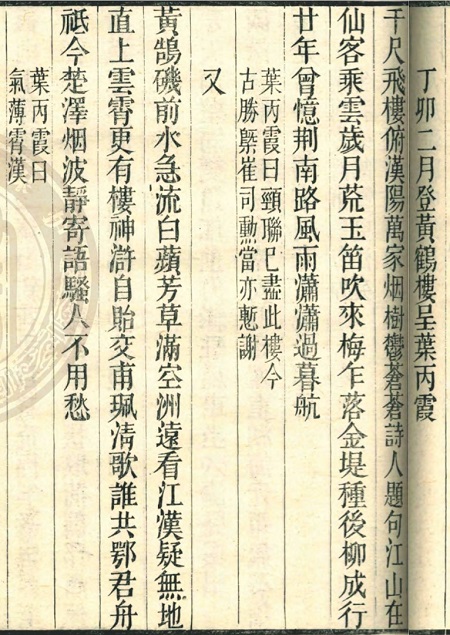 丁卯二月登黃鶴樓呈葉丙霞
千尺飛樓俯漢陽萬家烟樹鬱蒼蒼詩人題句江山在
仙客乘雲歲月荒玉笛吹來梅乍落金堤種後柳成行
廿年曾憶荆南路風雨瀟瀟過暮航
葉丙霞曰頸聯已盡此樓今
古勝槩崔司勳當亦慙謝
又
黃鵠磯前水急流白蘋芳草滿空洲遠看江漢疑無地
直上雲霄更有樓神滸自貽交甫珮清歌誰共鄂君舟
祇今楚澤烟波靜寄語騷人不用愁
葉丙霞曰
氣薄霄漢